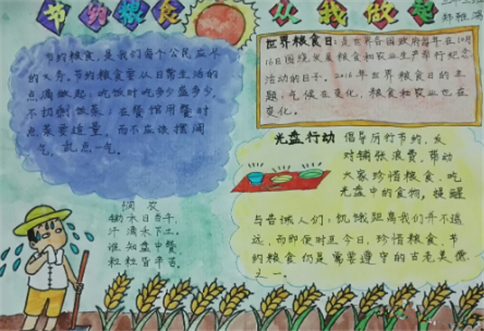 节约粮食 从我做起
节约粮食,是我们每个公民应尽
的义务。节约粮食要从日常生活的
点滴做起:吃饭时吃多少盛多少,
不扔剩饭菜;在餐馆用餐时
点菜要适量,而不应该摆阔
气,乱点一气。
世界粮食日:是世界各国政府每年在10月
16日围绕发展粮食和农业生产举行纪念
活动的日子。2016年世界粮食日的主
题,气候在变化,粮食和农业也在
变化。
光盘行动 倡导厉行节约,反
对铺张浪费,带动
大家珍惜粮食、吃
光盘中的食物,提醒
与告诫人们:饥饿距离我们并不遥
远,而即便时至今日,珍惜粮食、节
约粮食仍是需要遵守的古老美德
之一。
悯农
锄禾日当午,
汗滴禾下土。
谁知盘中餐,
粒粒皆辛苦。